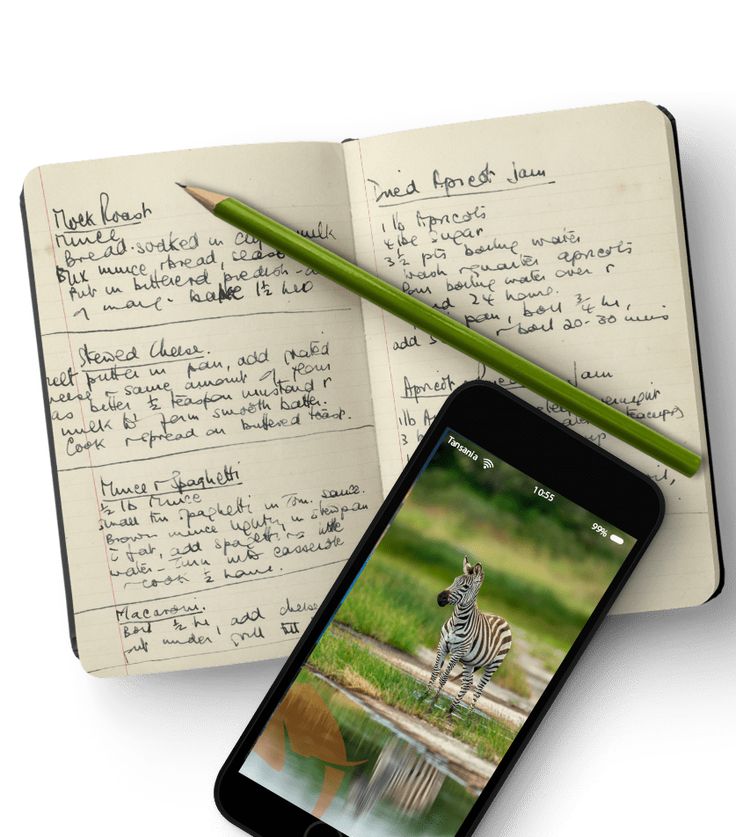 Mock Roast
Mince
Bread soaked in milk
Mix mince, bread,
Put in buttered piedish
bake 1½ hrs
Stewed Cheese.
melt butter in pan, add grated
cheese & same amount of flour
as butter, ½ teaspoon mustard &
milk to form smooth batter.
Cook & spread on buttered toast.
Mince & Spaghetti
½ lb Mince
Small tin Spaghetti in Tom. sauce.
Brown mince lightly in stewpan
fat, add spaghetti & little
water - Turn into casserole
& cook ½ hour.
Macaroni.
Boil ½ hr, add cheese
put under grill till
Dried Apricot Jam
1 lb Apricots
4 lbs sugar
3½ pts boiling water
Wash & quarter apricots
Pour boiling water over &
24 hours.
pan, boil ¾ hr,
add & boil 20-30 mins
Apricot Jam
1 lb
teacups
3
Tansania
10:55
99%